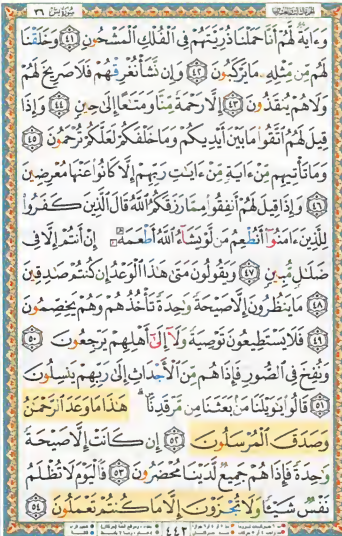 سُورَةُ يسٓ ٣٦
وَءَايَةٌ لَّهُمْ أَنَّا حَمَلْنَا ذُرِّيَّتَهُمْ فِي ٱلْفُلْكِ ٱلْمَشْحُونِ ٤١ وَخَلَقْنَا
لَهُم مِّن مِّثْلِهِۦ مَا يَرْكَبُونَ ٤٢ وَإِن نَّشَأْ نُغْرِقْهُمْ فَلَا صَرِيخَ لَهُمْ
وَلَا هُمْ يُنقَذُونَ ٤٣ إِلَّا رَحْمَةً مِّنَّا وَمَتَٰعًا إِلَىٰ حِينٍ ٤٤ وَإِذَا
قِيلَ لَهُمُ ٱتَّقُوا۟ مَا بَيْنَ أَيْدِيكُمْ وَمَا خَلْفَكُمْ لَعَلَّكُمْ تُرْحَمُونَ ٤٥
وَمَا تَأْتِيهِم مِّنْ ءَايَةٍ مِّنْ ءَايَٰتِ رَبِّهِمْ إِلَّا كَانُوا۟ عَنْهَا مُعْرِضِينَ
٤٦ وَإِذَا قِيلَ لَهُمْ أَنفِقُوا۟ مِمَّا رَزَقَكُمُ ٱللَّهُ قَالَ ٱلَّذِينَ كَفَرُوا۟
لِلَّذِينَ ءَامَنُوٓا۟ أَنُطْعِمُ مَن لَّوْ يَشَآءُ ٱللَّهُ أَطْعَمَهُۥٓ إِنْ أَنتُمْ إِلَّا فِي
ضَلَٰلٍ مُّبِينٍ ٤٧ وَيَقُولُونَ مَتَىٰ هَٰذَا ٱلْوَعْدُ إِن كُنتُمْ صَٰدِقِينَ
٤٨ مَا يَنظُرُونَ إِلَّا صَيْحَةً وَٰحِدَةً تَأْخُذُهُمْ وَهُمْ يَخِصِّمُونَ
٤٩ فَلَا يَسْتَطِيعُونَ تَوْصِيَةً وَلَآ إِلَىٰٓ أَهْلِهِمْ يَرْجِعُونَ ٥٠
وَنُفِخَ فِي ٱلصُّورِ فَإِذَا هُم مِّنَ ٱلْأَجْدَاثِ إِلَىٰ رَبِّهِمْ يَنسِلُونَ
٥١ قَالُوا۟ يَٰوَيْلَنَا مَنۢ بَعَثَنَا مِن مَّرْقَدِنَا ۜ هَٰذَا مَا وَعَدَ ٱلرَّحْمَٰنُ
وَصَدَقَ ٱلْمُرْسَلُونَ ٥٢ إِن كَانَتْ إِلَّا صَيْحَةً
وَٰحِدَةً فَإِذَا هُمْ جَمِيعٌ لَّدَيْنَا مُحْضَرُونَ ٥٣ فَٱلْيَوْمَ لَا تُظْلَمُ
نَفْسٌ شَيْـًٔا وَلَا تُجْزَوْنَ إِلَّا مَا كُنتُمْ تَعْمَلُونَ ٥٤
٤٤٣